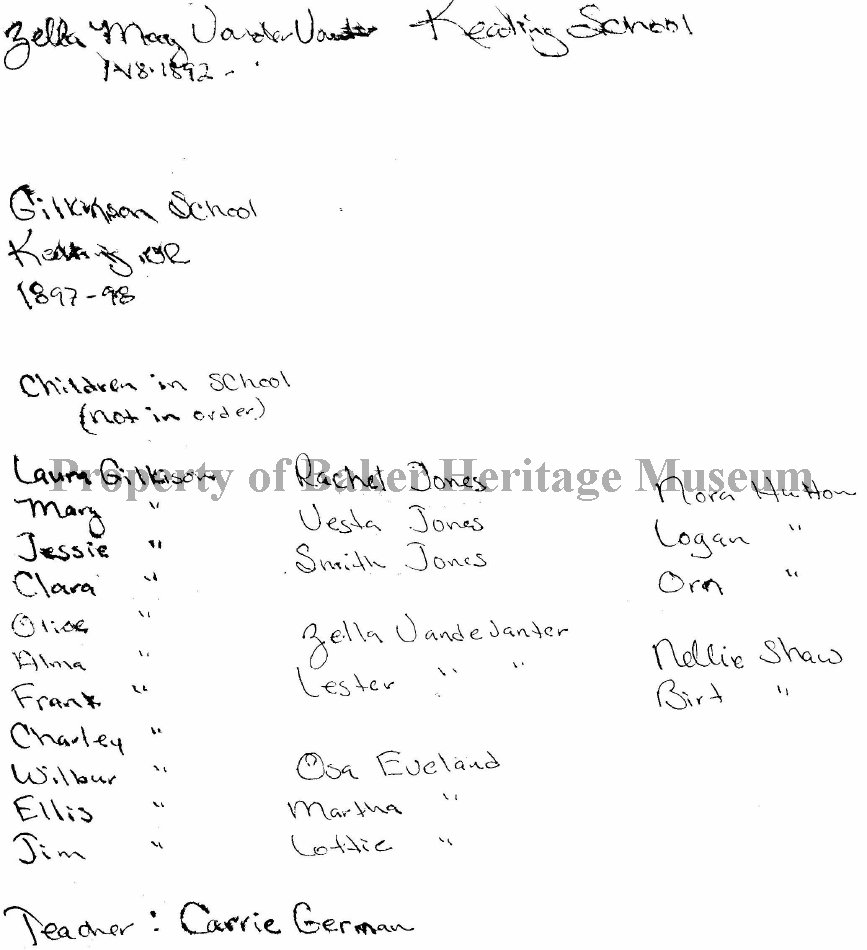 Zella Mary VanderVan Keating School
11/18.1892 -
Gilkinson School
Keating, OR
1897-98
Children in School
(not in order)
Property of Baker Heritage Museum
Laura Gilkison Rachel Jones Nora Hutton
Mary " Vesta Jones Logan "
Jessie " Smith Jones Orn "
Clara "
Olive " Zella Vandevanter
Alma " Lester " " Nellie Shaw
Frank " Birt "
Charley "
Wilbur " Osa Eveland
Ellis " Martha "
Jim " Lottie "
Teacher : Carrie German